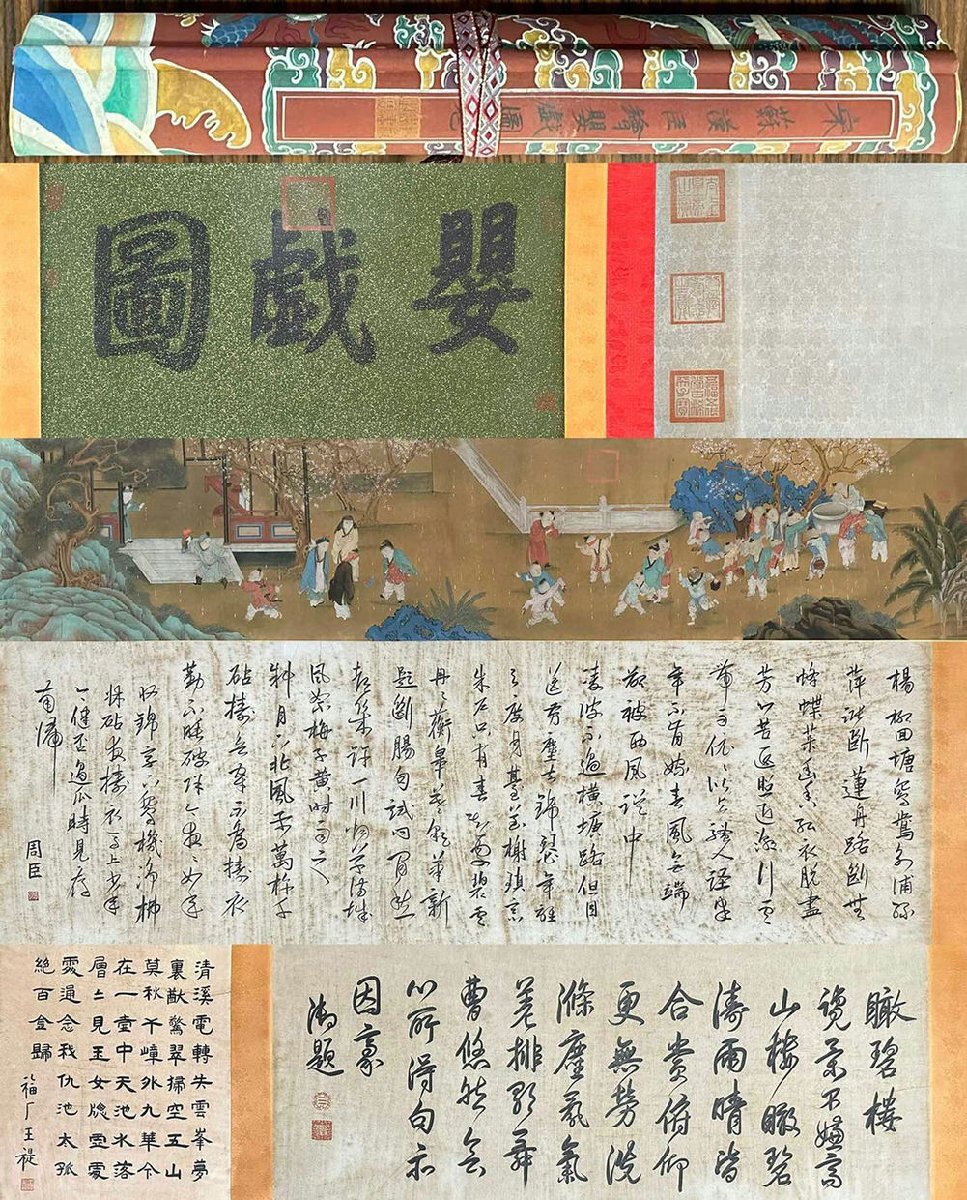 宋蘇漢臣繪嬰戲圖
嬰戲圖
楊柳回塘鴛鴦別浦綠
萍漲斷蓮舟路斷無
蜂蝶慕幽香紅衣脫盡
芳心苦返照迎潮行雲
帶雨依依似與騷人語當
年不肯嫁春風無端
卻被西風誤
凌波不過橫塘路但目
送芳塵去錦瑟年華誰
與度月臺花榭瑣窗
朱戶只有春知處碧雲
冉冉蘅皋暮彩筆新
題斷腸句試問閒愁
都幾許一川烟草滿城
風絮梅子黃時雨又
斜月下北風前萬杵千
砧搗欲穿不為搗衣
勤不睡破除今夜夜如年
收錦字下鴛機淨拂
牀砧夜搗衣馬上少年
今健否過瓜時見雁
南歸
周臣
瞰碧樓
覽景不嫌高
山樓瞰碧
濤雨晴皆
合賞俯仰
更無勞洗
滌塵氛氣
舞
曹悠然會
心所得句亦
因豪
御題
清溪電轉失雲峯夢
裏猷驚翠掃空五山
莫秋千嶂外九華今
在一壺中天池水落
層〻見玉女牕虛處
處通念我仇池太孤
絕百金歸
福厂王禔